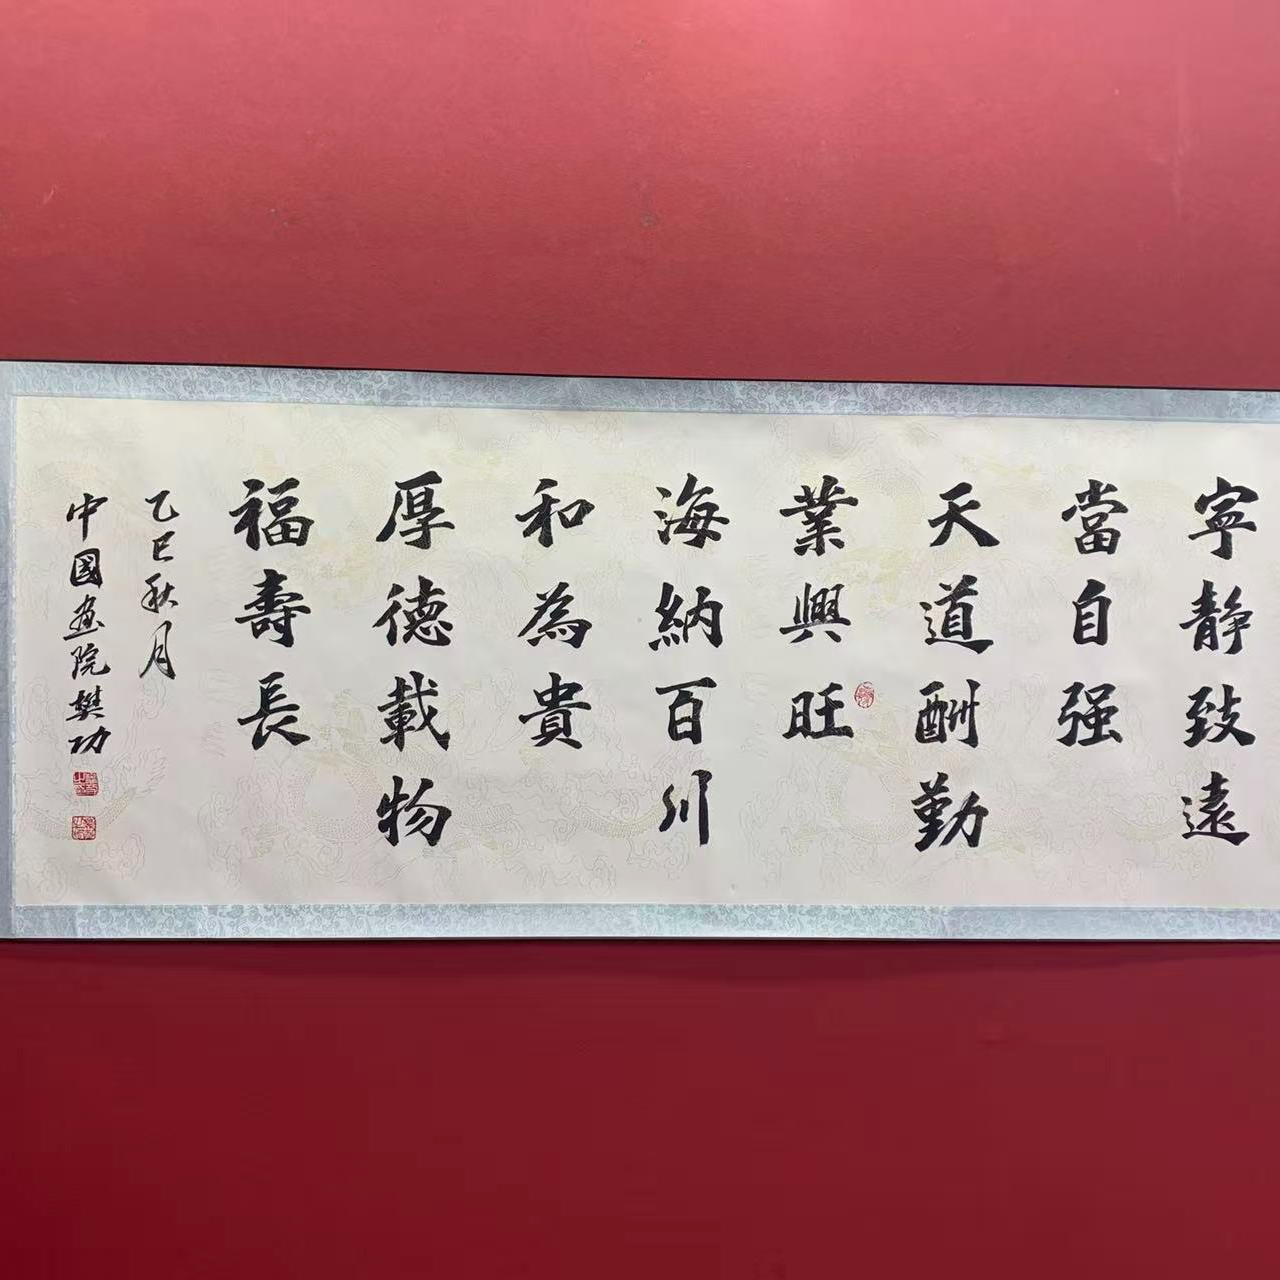 寧静致遠
當自强
天道酬勤
業興旺
海納百川
和為貴
厚德載物
福壽長
乙巳秋月
中國畫院樊功